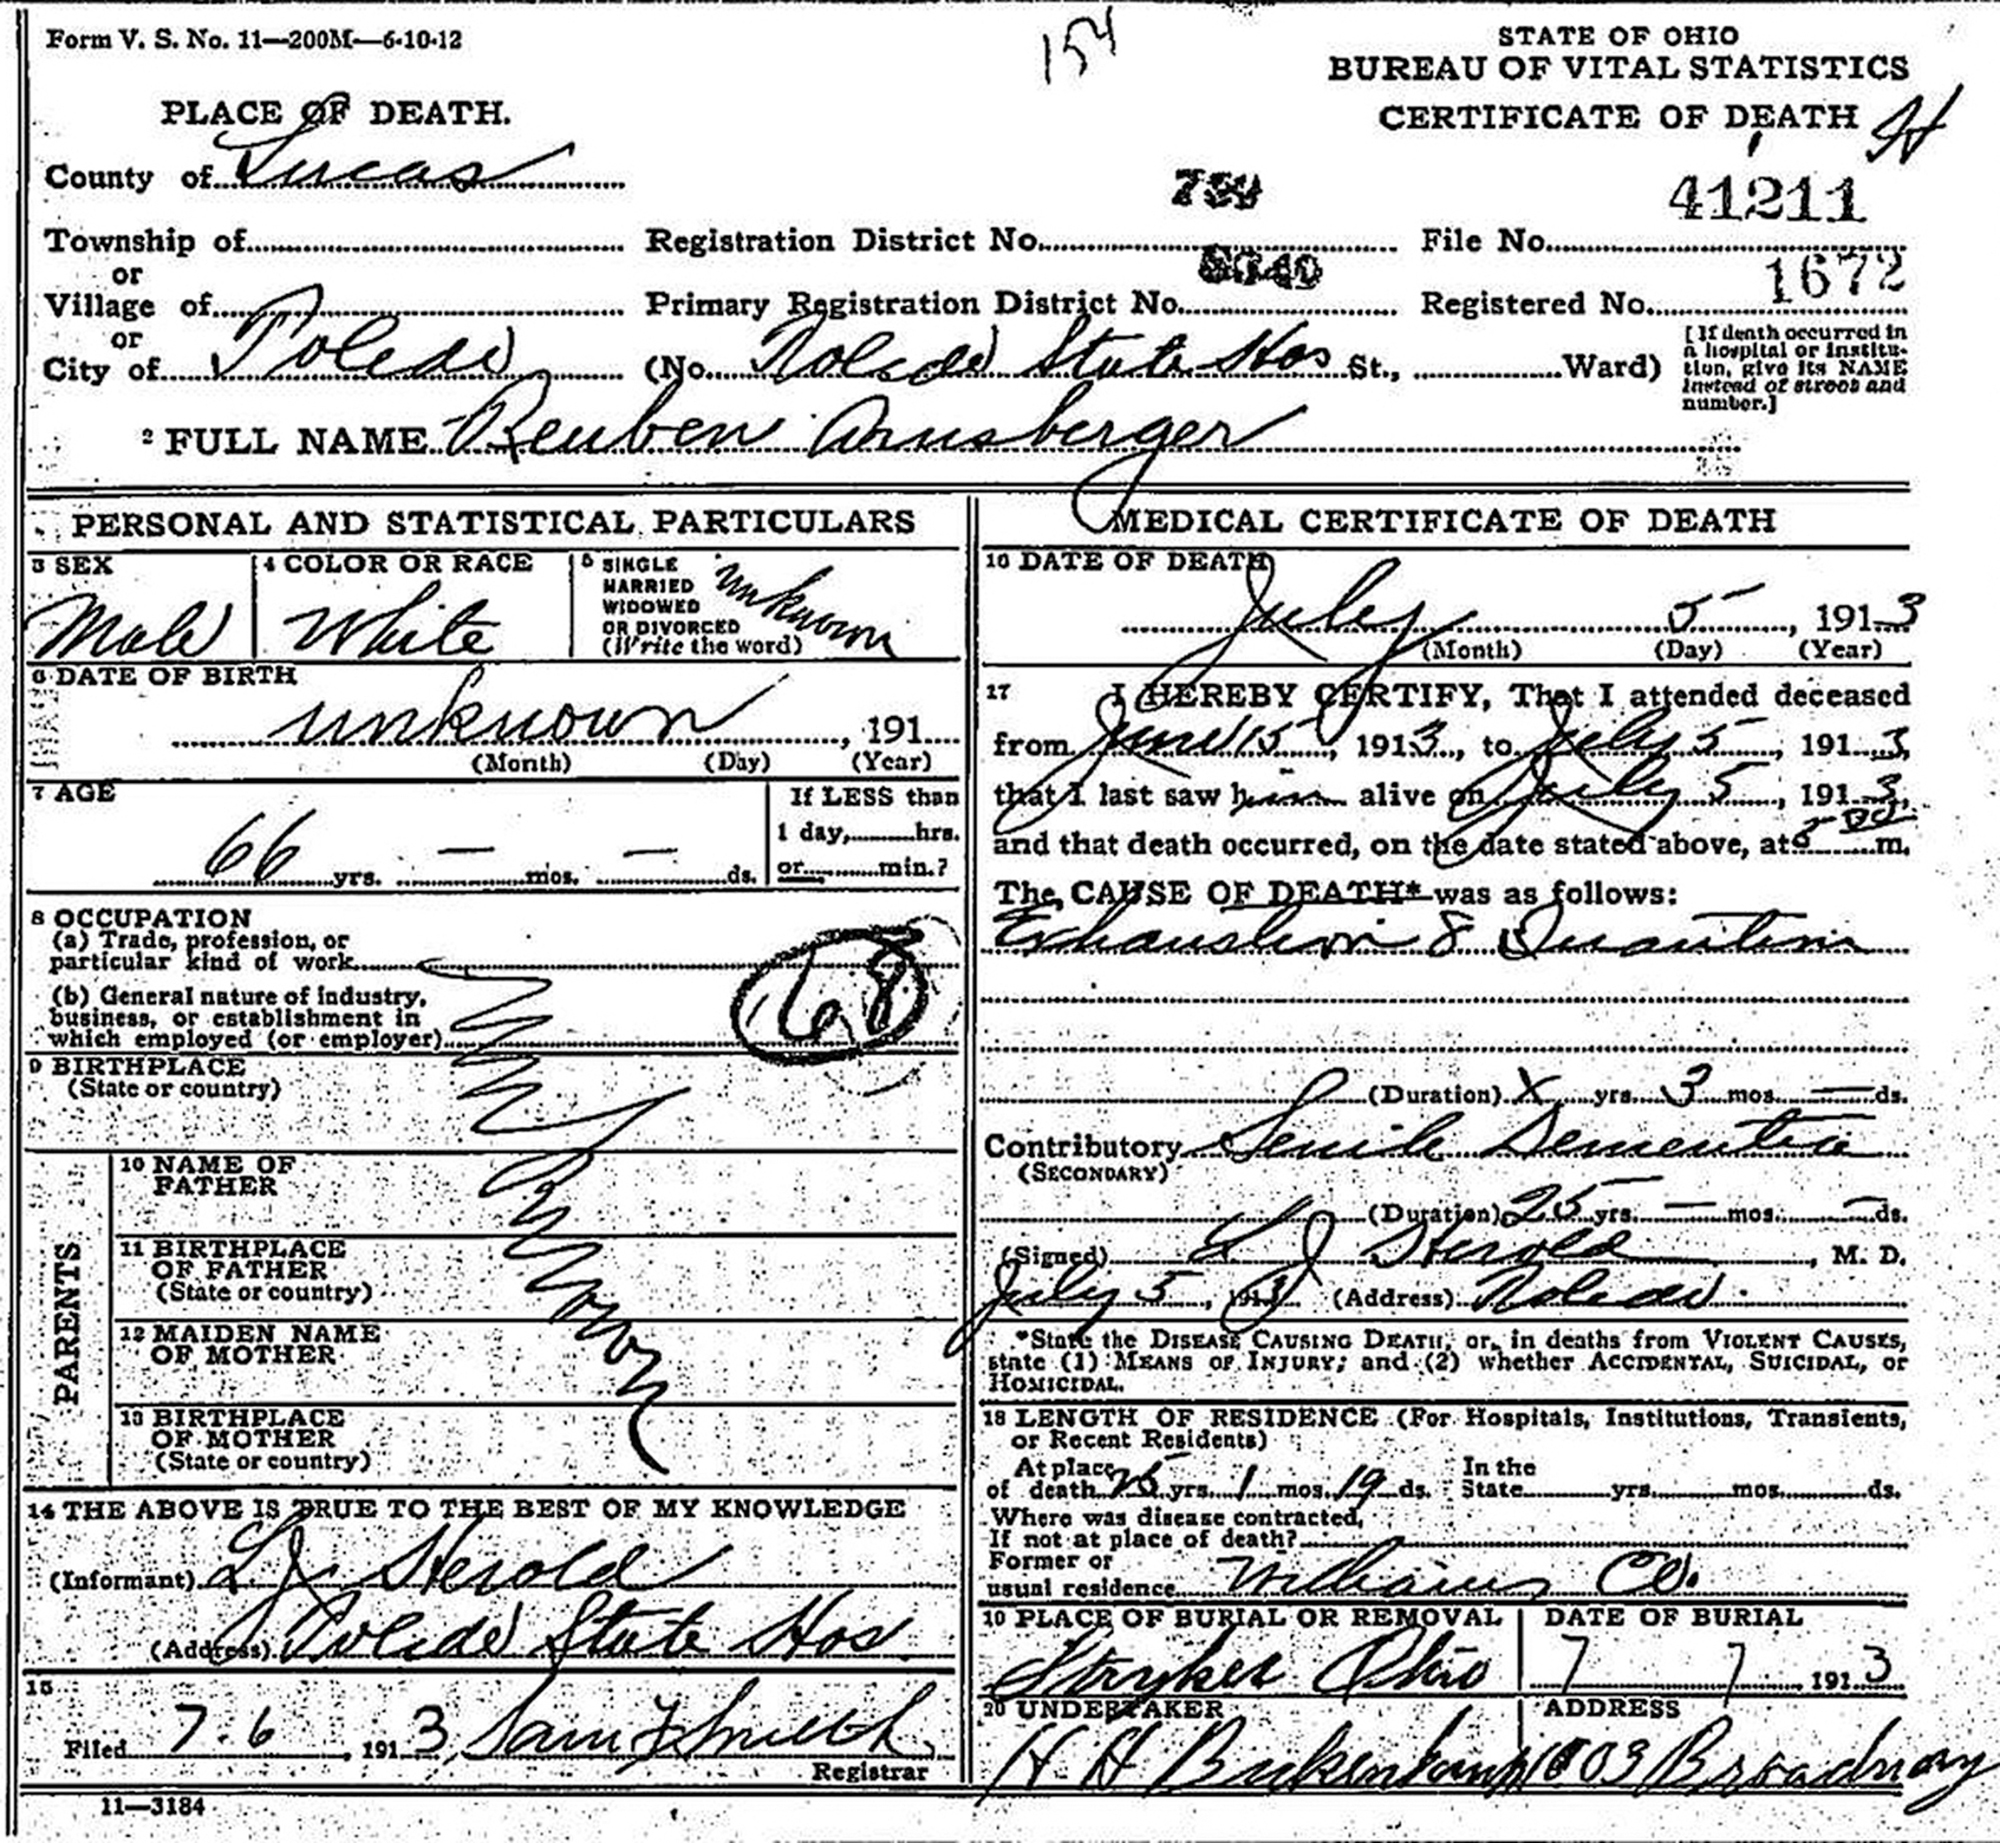 Form V. S. No. 11—200M—6-10-12
154
STATE OF OHIO
BUREAU OF VITAL STATISTICS
CERTIFICATE OF DEATH
PLACE OF DEATH.
County of Lucas
Township of
or
Village of
or
City of Toledo
Registration District No.
File No. 41211
Primary Registration District No.
Registered No. 1672
(No. Toledo State Hos St., Ward)
[If death occurred in
a hospital or institu-
tion, give its NAME
instead of street and
number.]
2 FULL NAME Reuben Arnsberger
PERSONAL AND STATISTICAL PARTICULARS
3 SEX
Male
4 COLOR OR RACE
White
5 SINGLE
MARRIED
WIDOWED
OR DIVORCED
(Write the word)
unknown
6 DATE OF BIRTH
unknown , 191
(Month) (Day) (Year)
7 AGE
66 yrs. — mos. — ds.
If LESS than
1 day, hrs.
or min.?
8 OCCUPATION
(a) Trade, profession, or
particular kind of work
(b) General nature of industry,
business, or establishment in
which employed (or employer)
68
9 BIRTHPLACE
(State or country)
PARENTS
10 NAME OF
FATHER
11 BIRTHPLACE
OF FATHER
(State or country)
12 MAIDEN NAME
OF MOTHER
13 BIRTHPLACE
OF MOTHER
(State or country)
14 THE ABOVE IS TRUE TO THE BEST OF MY KNOWLEDGE
(Informant) L J Herold
(Address) Toledo State Hos
15
Filed 7-6, 1913 Sam Smith
Registrar
11—3184
MEDICAL CERTIFICATE OF DEATH
16 DATE OF DEATH
July 5, 1913
(Month) (Day) (Year)
17 I HEREBY CERTIFY, That I attended deceased
from June 15, 1913, to July 5, 1913,
that I last saw him alive on July 5, 1913,
and that death occurred, on the date stated above, at m.
The CAUSE OF DEATH* was as follows:
Exhaustion &
(Duration) X yrs. 3 mos. — ds.
Contributory Senile Dementia
(SECONDARY)
(Duration) 25 yrs. — mos. — ds.
(Signed) L J Herold, M. D.
July 5, 1913 (Address) Toledo
*State the DISEASE CAUSING DEATH, or, in deaths from VIOLENT CAUSES,
state (1) MEANS OF INJURY; and (2) whether ACCIDENTAL, SUICIDAL, or
HOMICIDAL.
18 LENGTH OF RESIDENCE (For Hospitals, Institutions, Transients,
or Recent Residents)
At place
of death 25 yrs. 1 mos. 19 ds.
In the
State yrs. mos. ds.
Where was disease contracted,
If not at place of death?
Former or
usual residence Williams Co.
19 PLACE OF BURIAL OR REMOVAL
Stryker Ohio
DATE OF BURIAL
7 7 1913
20 UNDERTAKER
H H Birkenkamp
ADDRESS
1003 Broadway